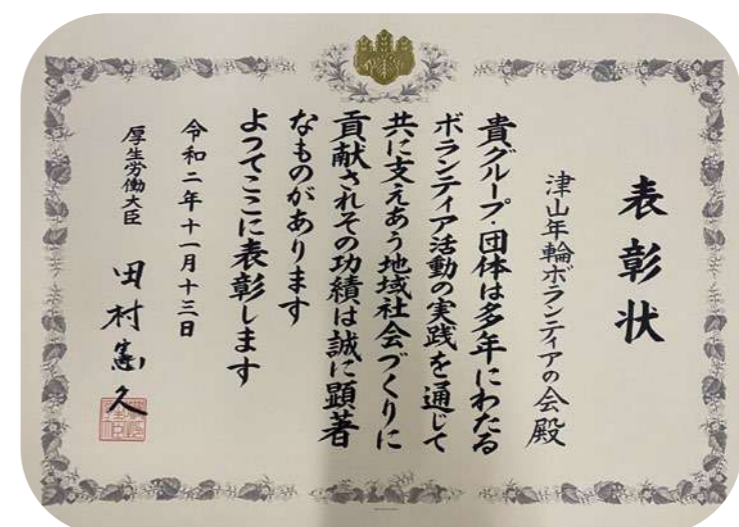 表彰状
津山年輪ボランティアの会殿
貴グループ・団体は多年にわたる
ボランティア活動の実践を通じて
共に支えあう地域社会づくりに
貢献されその功績は誠に顕著
なものがあります
よつてここに表彰します
令和二年十一月十三日
厚生労働大臣 田村憲久